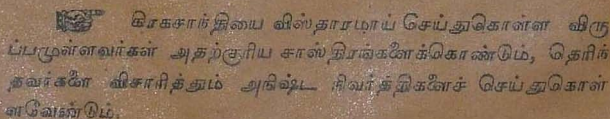 கிரகசாந்தியை விஸ்தாரமாய் செய்துகொள்ள விரு
ப்பமுள்ளவர்கள் அதற்குரிய சாஸ்திரங்களைக்கொண்டும், தெரிந்
தவர்களை விசாரித்தும் அநிஷ்ட நிவர்த்திகளைச் செய்துகொள்
ளவேண்டும்.